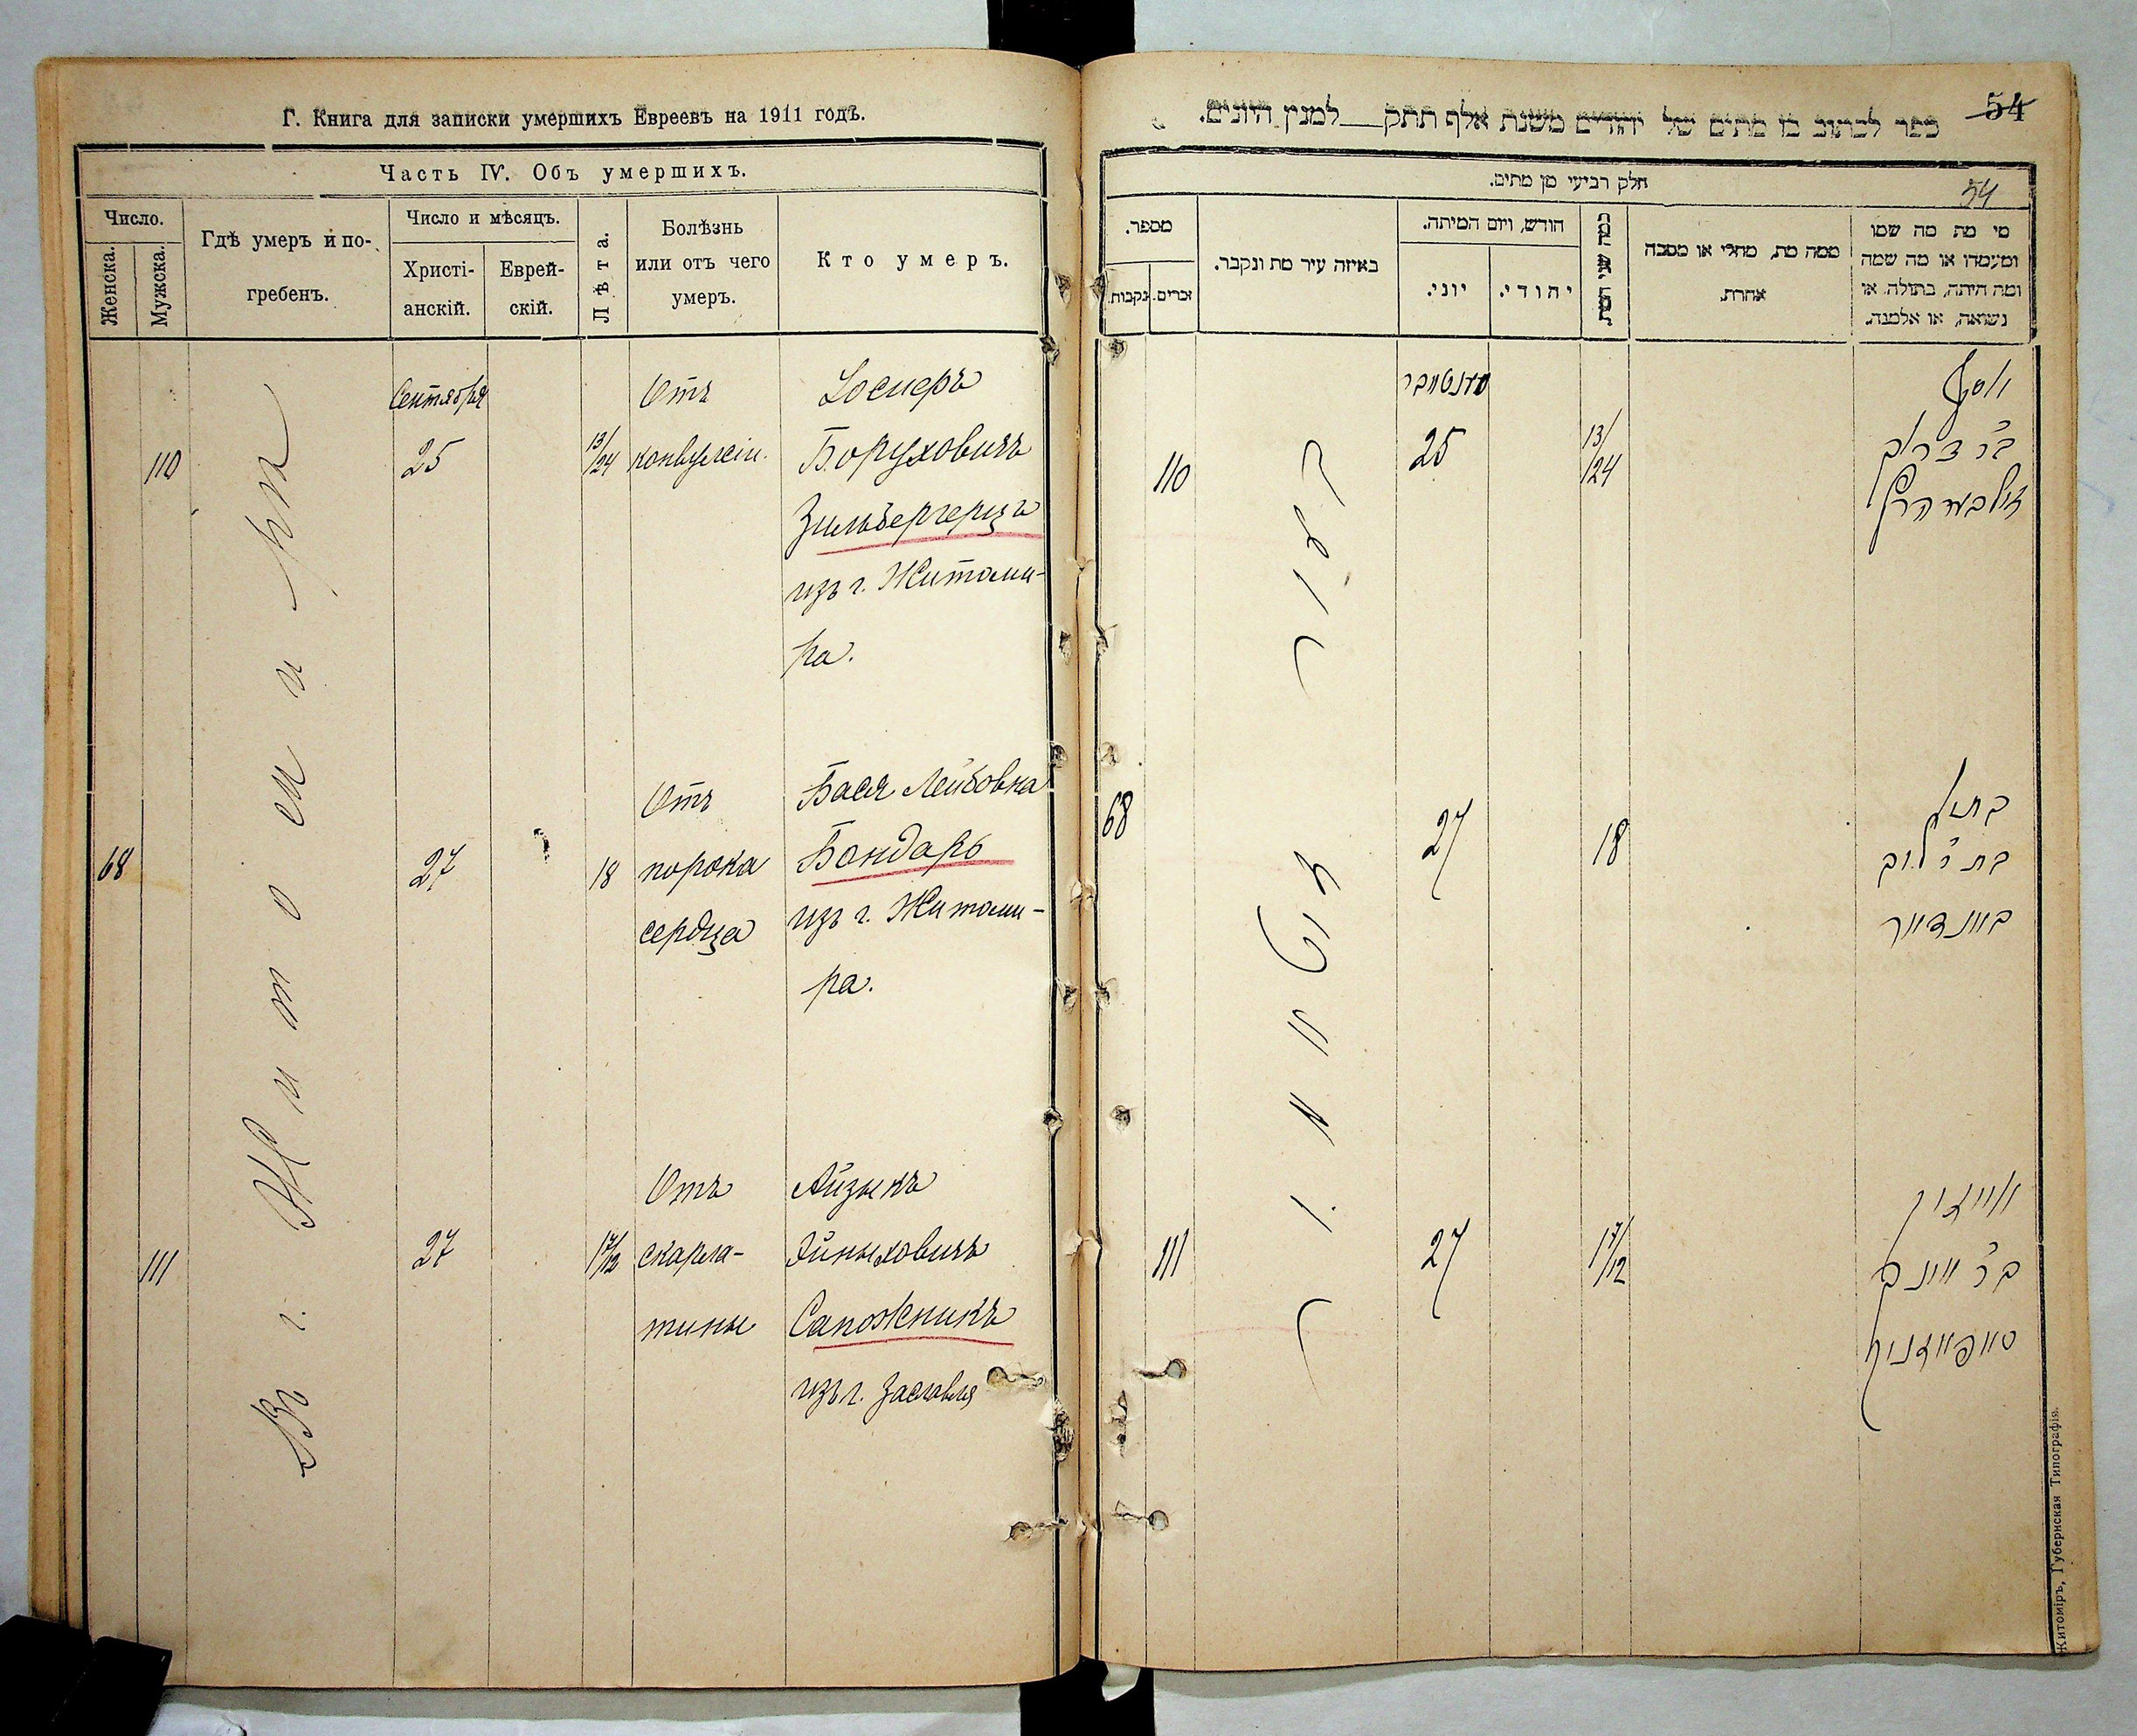 Г. Книга для записки умершихъ Евреевъ на 1911 годъ.
Часть IV. Объ умершихъ.
Число.
Женска.
Мужска.
Гдѣ умеръ и по-
гребенъ.
Число и мѣсяцъ.
Христі-
анскій.
Еврей-
скій.
Лѣта.
Болѣзнь
или отъ чего
умеръ.
Кто умеръ.
Въ г. Житомирѣ
Сентября
110
25
13/24
Отъ
конвульсіи.
Іосиеръ
Боруховичъ
Зильбергерцъ
изъ г. Житоми-
ра.
68
27
18
Отъ
порока
сердца
Бася Лейбовна
Бондарь
изъ г. Житоми-
ра.
111
27
17/12
Отъ
скарла-
тины
Айзыкъ
Эйныховичъ
Сапожникъ
изъ г. Заславля
54
ספר לכתוב בו מתים של יהודים משנת אלף תתק__למנין היונים.
חלק רביעי מן מתים.
54
מספר.
נקבות.
זכרים.
באיזה עיר מת ונקבר.
חודש, ויום המיתה.
יוני.
יהודי.
ממה מת, מחלי או מסבה
אחרת.
מי מת מה שמו
ומעמדו או מה שמה
ומה היתה, בתולה או
נשואה, או אלמנה.
סענטיאבר
110
25
13/24
יוסף
ב"ר ברוך
זילבערהרץ
68
27
18
באסיא
בת ר' לייב
באנדאר
111
27
17/12
אייזיק
סאפאזניק
Житоміръ, Губернская Типографія.